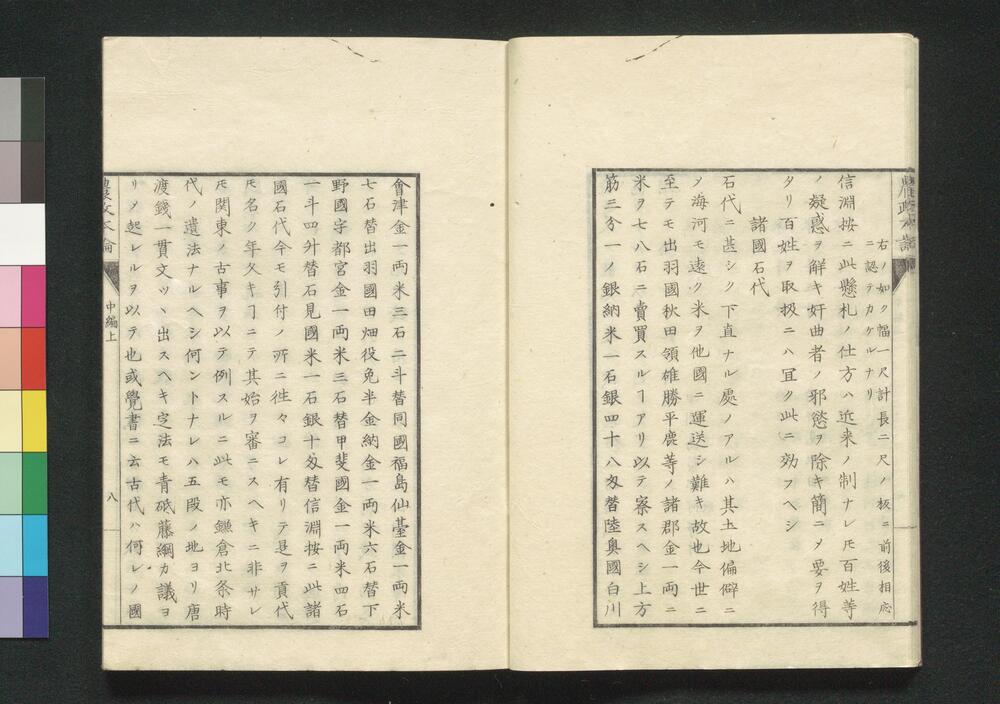 農政本論
右ノ如ク幅一尺計長二尺ノ板ニ前後相応
ニ認テカケルナリ
信淵按ニ此懸札ノ仕方ハ近来ノ制ナレ𪜈百姓等
ノ疑惑ヲ解キ奸曲者ノ邪慾ヲ除キ簡ニメ要ヲ得
タリ百姓ヲ取扱ニハ冝ク此ニ効フヘシ
諸國石代
石代ニ甚シク下直ナル處ノアルハ其土地偏僻ニ
メ海河モ遠ク米ヲ他國ニ運送シ難キ故也今世ニ
至テモ出羽國秋田領雄勝平鹿等ノ諸郡金一両ニ
米ヲ七八石ニ賣買スルヿアリ以テ察スヘシ上方
筋三分一ノ銀納米一石銀四十八匁替陸奥國白川
會津金一両米三石二斗替同國福島仙䑓金一両米
七石替出羽國田畑役免半金納金一両米六石替下
野國宇都宮金一両米三石替甲斐國金一両米四石
一斗四升替石見國米一石銀十匁替信淵按ニ此諸
國石代今モ引付ノ所ニ徃々コレ有リテ是ヲ貢代
𪜈名ク年久キヿニテ其始ヲ審ニスヘキニ非サレ
𪜈関東ノ古事ヲ以テ例スルニ此モ亦鎌倉北条時
代ノ遺法ナルヘシ何ントナレハ五段ノ地ヨリ唐
渡錢一貫文ツヽ出スヘキ定法モ青砥藤綱カ議ヨ
リメ起レルヲ以テ也或覺書ニ云古代ハ何レノ國
農政本論
中編上
八